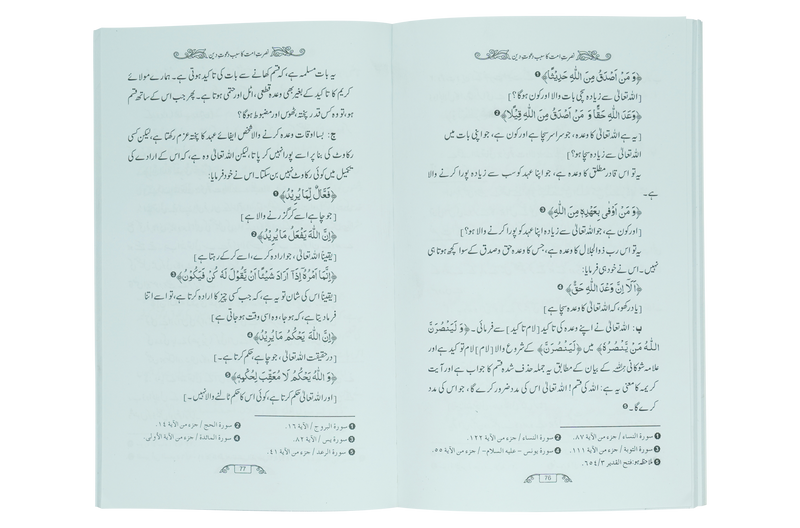 نصرتِ امت کا سبب دعوتِ دین
﴿وَ مَنْ اَصْدَقُ مِنَ اللّٰهِ حَدِيْثًا﴾❶
[اللہ تعالیٰ سے زیادہ سچی بات والا اور کون ہوگا؟]
﴿وَعْدَ اللّٰهِ حَقًّا وَ مَنْ اَصْدَقُ مِنَ اللّٰهِ قِيْلًا﴾❷
[یہ ہے اللہ تعالیٰ کا وعدہ، جو سراسر سچا ہے اور کون ہے، جو اپنی بات میں
اللہ تعالیٰ سے زیادہ سچا ہو؟]
یہ تو اس قادرِ مطلق کا وعدہ ہے، جو اپنا عہد کو سب سے زیادہ پورا کرنے والا
ہے۔
﴿وَ مَنْ اَوْفٰى بِعَهْدِهٖ مِنَ اللّٰهِ﴾❸
[اور کون ہے، جو اللہ تعالیٰ سے زیادہ اپنا عہد کو پورا کرنے والا ہو؟]
یہ تو اس رب ذوالجلال کا وعدہ ہے، جس کا وعدہ حق وصدق کے سوا کچھ ہوتا ہی
نہیں۔ اس نے خود ہی فرمایا:
﴿اَلَآ اِنَّ وَعْدَ اللّٰهِ حَقٌّ﴾❹
[یاد رکھو، کہ اللہ تعالیٰ کا وعدہ سچا ہے]
ب: اللہ تعالیٰ نے اپنے وعدہ کی تاکید [لامِ تاکید] سے فرمائی۔ ﴿وَ لَيَنْصُرَنَّ
اللّٰهُ مَنْ يَّنْصُرُهٗ﴾ میں ﴿لَيَنْصُرَنَّ﴾ کے شروع والا [لام] لامِ توکید ہے اور
علامہ شوکانی کے بیان کے مطابق یہ جملہ حذف شدہ قسم کا جواب ہے اور آیت
کریمہ کا معنی یہ ہے: اللہ کی قسم! اللہ تعالیٰ اس کی مدد ضرور کرے گا، جو اس کی مدد
کرے گا۔❺
❶ سورة النساء / جزء من الآية ٨٧. ❷ سورة النساء / جزء من الآية ١٢٢.
❸ سورة التوبة / جزء من الآية ١١١. ❹ سورة يونس - عليه السلام- / جزء من الآية ٥٥.
❺ ملاحظہ ہو: فتح القدير ٦٥٤/٣.
76
نصرتِ امت کا سبب دعوتِ دین
یہ بات مسلمہ ہے، کہ قسم کھانے سے بات کی تاکید ہوتی ہے۔ ہمارے مولائے
کریم کا تاکید کے بغیر بھی وعدہ قطعی، اٹل اور حتمی ہوتا ہے۔ پھر جب اس کے ساتھ قسم
ہو، تو وہ کس قدر پختہ، ٹھوس اور مضبوط ہوگا؟
ج: بسا اوقات وعدہ کرنے والا شخص ایفائے عہد کا پختہ عزم رکھتا ہے، لیکن کسی
رکاوٹ کی بنا پر اسے پورا نہیں کر پاتا، لیکن اللہ تعالیٰ وہ ہے، کہ اس کے ارادے کی
تکمیل میں کوئی رکاوٹ نہیں بن سکتا۔ اس نے خود فرمایا:
﴿فَعَّالٌ لِّمَا يُرِيْدُ﴾❶
[جو چاہے اسے کر گزرنے والا ہے]
﴿اِنَّ اللّٰهَ يَفْعَلُ مَا يُرِيْدُ﴾❷
[یقیناً اللہ تعالیٰ، جو ارادہ کرے، اسے کر کے رہتا ہے]
﴿اِنَّمَآ اَمْرُهٗٓ اِذَآ اَرَادَ شَيْئًا اَنْ يَّقُوْلَ لَهٗ كُنْ فَيَكُوْنُ﴾❸
[یقیناً اس کی شان تو یہ ہے، کہ جب کسی چیز کا ارادہ کرتا ہے، تو اسے اتنا
فرما دیتا ہے، کہ ہو جا، وہ اسی وقت ہو جاتی ہے]
﴿اِنَّ اللّٰهَ يَحْكُمُ مَا يُرِيْدُ﴾❹
[درحقیقت اللہ تعالیٰ، جو چاہے حکم کرتا ہے۔]
﴿وَ اللّٰهُ يَحْكُمُ لَا مُعَقِّبَ لِحُكْمِهٖ﴾❺
[اور اللہ تعالیٰ حکم کرتا ہے، کوئی اس کا حکم ٹالنے والا نہیں۔]
❶ سورة البروج / الآية ١٦. ❷ سورة الحج / جزء من الآية ١٤.
❸ سورة يس / الآية ٨٢. ❹ سورة المائدة / جزء من الآية الأولى.
❺ سورة الرعد / جزء من الآية ٤١.
77